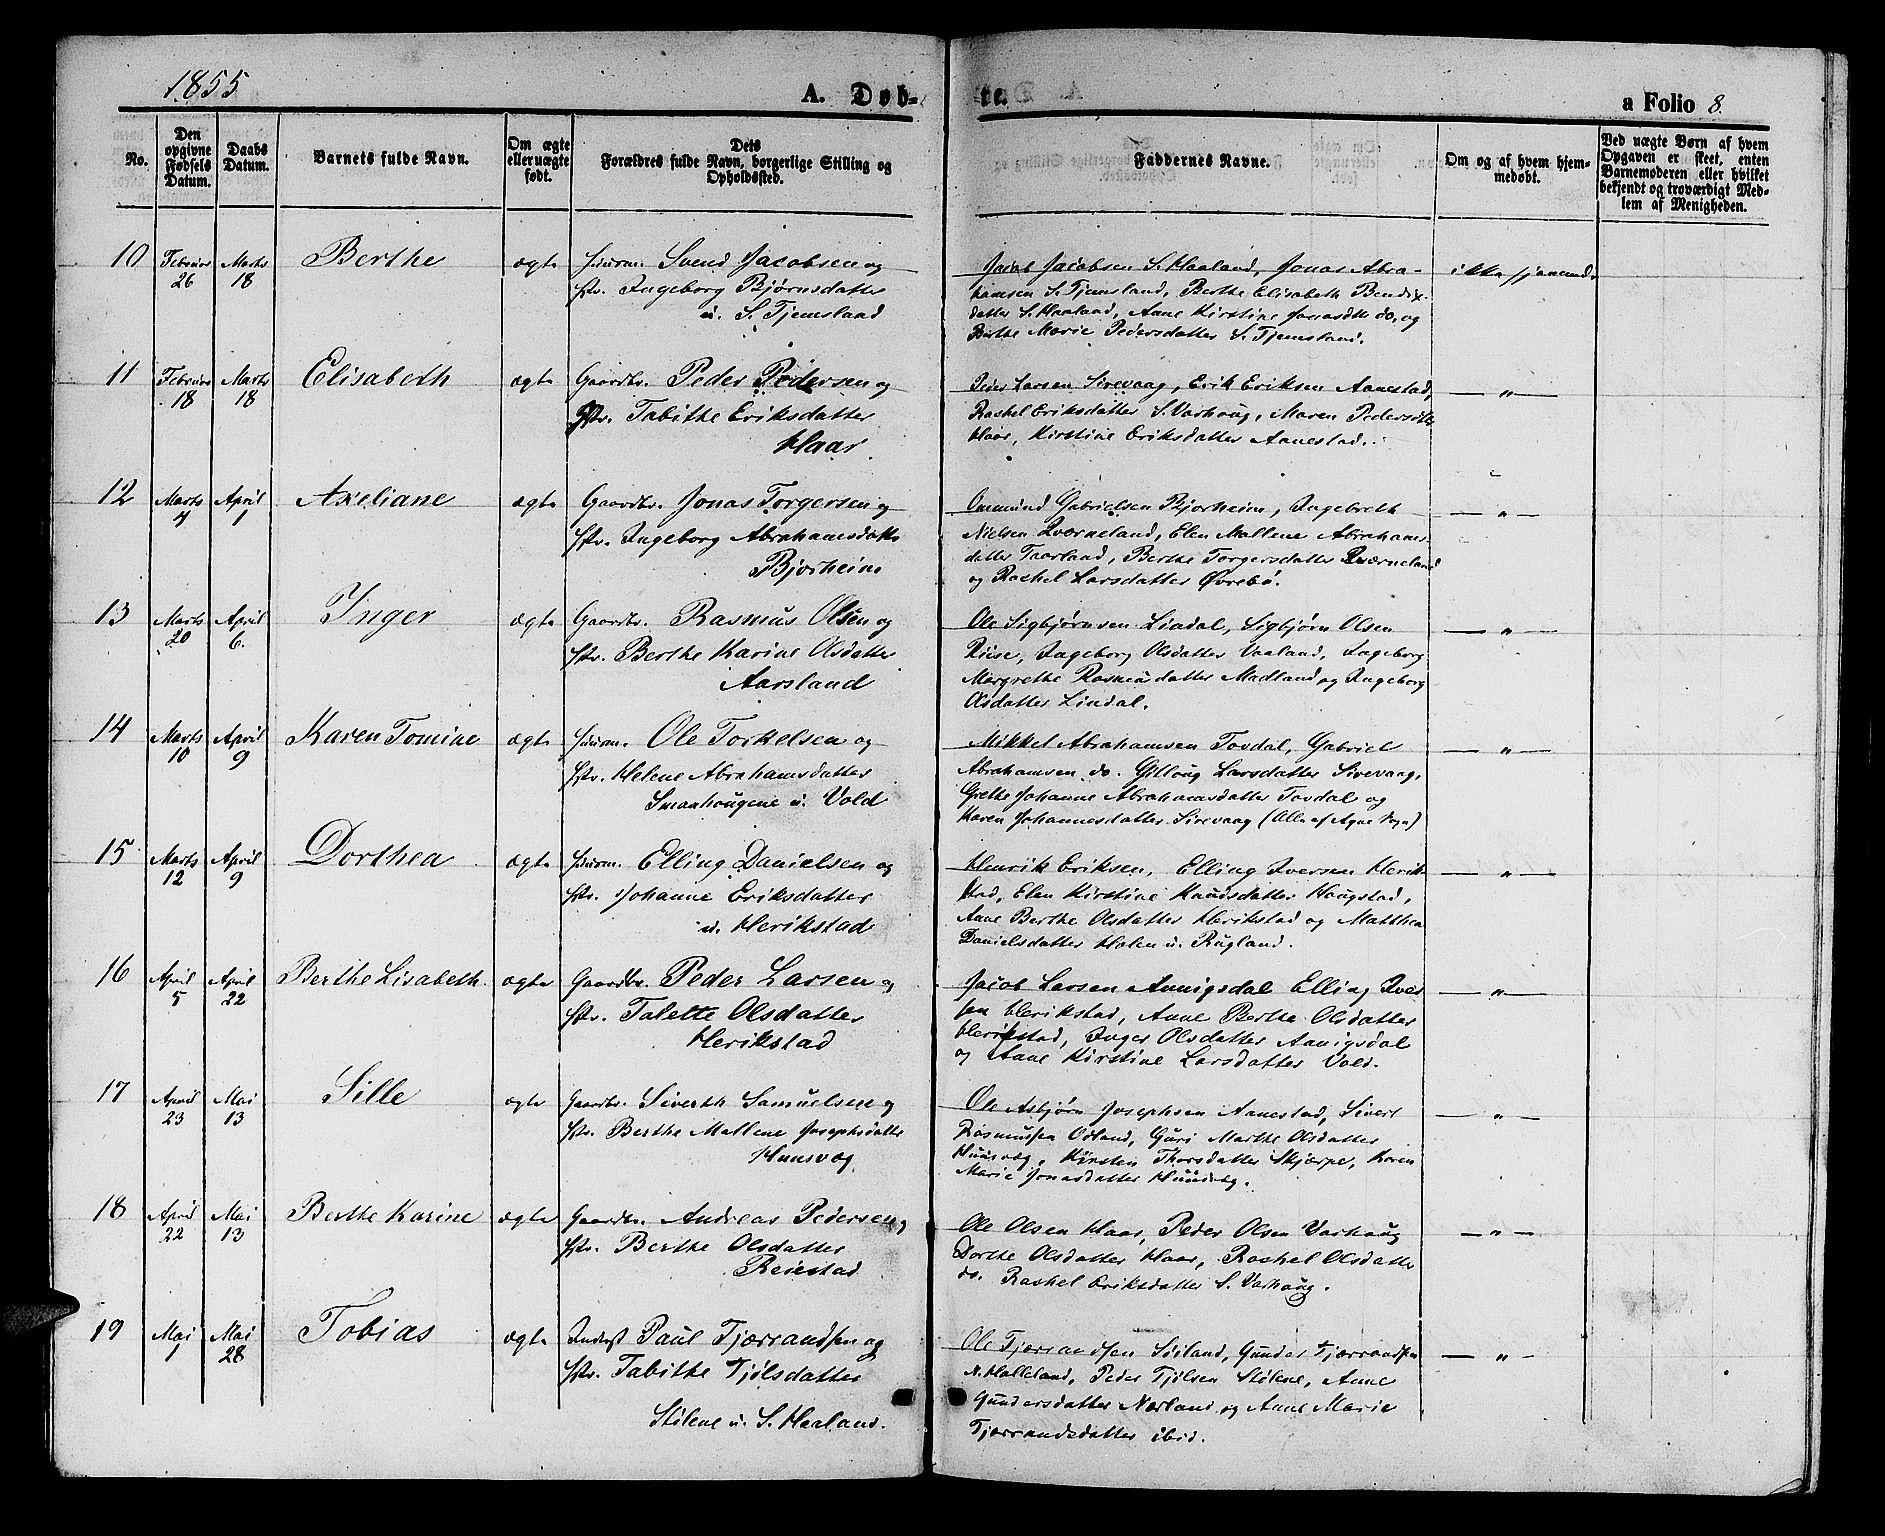 1855
A. Døb-
te.
a Folio 8.
No.
Den
opgivne
Fødsels
Datum.
Daabs
Datum.
Barnets fulde Navn.
Om ægte
eller uægte
født.
Dets
Forældres fulde Navn, borgerlige Stilling og
Opholdssted.
Faddernes Navne.
Om og af hvem hjem-
medøbt.
Ved uægte Børn af hvem
Opgaven er skeet, enten
Barnemoderen eller hvilket
bekjendt og troværdigt Med-
lem af Menigheden.
10 Februar 26 Marts 18 Berthe ægte Huusm. Svend Jacobsen og
Hstr. Ingeborg Bjørnsdatter
u. S. Tjemsland
Jacob Jacobsen S. Haaland, Jonas Abra-
hamsen S. Tjemsland, Berthe Elisabeth Bendix-
datter S. Haaland, Anne Kirstine Jonasdtr do, og
Berthe Marie Pedersdatter S. Tjemsland.
ikke hjemmed.
11 Februar 18 Marts 18 Elisabeth ægte Gaardbr. Peder Pedersen og
Hstr. Tabithe Eriksdatter
Haar
Peder Larsen Sirevaag, Erik Eriksen Aanestad,
Rachel Eriksdatter S. Varhoug, Maren Pedersdtter
Haar, Kirstine Eriksdatter Aanestad.
— " —
12 Marts 7 April 1 Axeliane ægte Gaardbr. Jonas Torgersen og
Hstr. Ingeborg Abrahamsdatter
Bjorheim
Ommund Gabrielsen Bjorheim, Ingebreth
Nielsen Qværneland, Elen Mallene Abrahams-
datter Taarland, Berthe Torgersdatter Qværneland
og Rachel Larsdatter Øvrebø.
— " —
13 Marts 20 April 6. Inger ægte Gaardbr. Rasmus Olsen og
Hstr. Berthe Karine Olsdatter
Aarsland
Ole Sigbjørnsen Lindal, Sigbjørn Olsen
Riise, Ingeborg Olsdatter Vaaland, Ingeborg
Margrethe Rasmusdatter Madland og Ingeborg
Olsdatter Lindal.
— " —
14 Marts 10 April 9 Karen Tomine ægte Huusm. Ole Torkelsen og
Hstr. Helene Abrahamsdatter
Smaahougene u. Vold
Mikkel Abrahamsen Tovdal, Gabriel
Abrahamsen do. Gitloug Larsdatter Sirevaag,
Grethe Johanne Abrahamsdatter Tovdal og
Karen Johannesdatter Sirevaag (Alle af Agne Sogn)
— " —
15 Marts 12 April 9 Dorthea ægte Huusm. Elling Danielsen og
Hstr. Johanne Eriksdatter
u. Herikstad
Henrik Eriksen, Elling Iversen Herik-
stad, Elen Kirstine Knudsdatter Haugstad,
Anne Berthe Olsdatter Herikstad og Matthea
Danielsdatter Holen u. Rugland.
— " —
16 April 5 April 22 Berthe Lisabeth ægte Gaardbr. Peder Larsen og
Hstr. Talette Olsdatter
Herikstad
Jacob Larsen Aanigsdal Elling Iver-
sen Herikstad, Anne Berthe Olsdatter
Herikstad, Inger Olsdatter Aanigsdal
og Anne Kirstine Larsdatter Vold.
— " —
17 April 23 Mai 13 Sille ægte Gaardbr. Siverth Samuelsen og
Hstr. Berthe Mallene Josephsdatter
Huusvæg
Ole Asbjørn Josephsen Aanestad, Sivert
Rasmussen Odland, Guri Marthe Olsdatter
Huusvæg, Kirsten Thorsdatter Skjærpe, Karen
Marie Jonasdatter Huusvæg.
— " —
18 April 22 Mai 13 Berthe Karine ægte Gaardbr. Andreas Pedersen og
Hstr. Berthe Olsdatter
Reiestad
Ole Olsen Haar, Peder Olsen Varhaug
Dorthe Olsdatter Haar, Rachel Olsdatter
do. Rachel Eriksdatter S. Varhaug.
— " —
19 Mai 1 Mai 28 Tobias ægte Inderst Paul Tjærrandsen og
Hstr. Tabithe Tjølsdatter
Stølene u. S. Haaland.
Ole Tjærrandsen Søiland, Gunder Tjærrandsen
N. Halleland, Peder Tjølsen Stølene, Anne
Gundersdatter Nærland og Anne Marie
Tjærrandsdatter ibid.
— " —